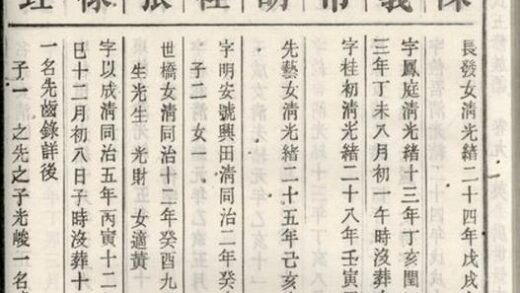 長發女清光緒二十四年戊戌
字鳳庭清光緒十三年丁亥閏
三年丁未八月初一午時沒葬
字桂初清光緒二十八年壬寅
先藝女清光緒二十五年己亥
字明安號興田清同治二年癸
子二 女一
世橋女清同治十二年癸酉九
生光生 光財 女適黃
字以成清同治五年丙寅十二
巳十二月初八日子時沒葬十
一名先鹵錄詳後
子一 之先之子光峻一名